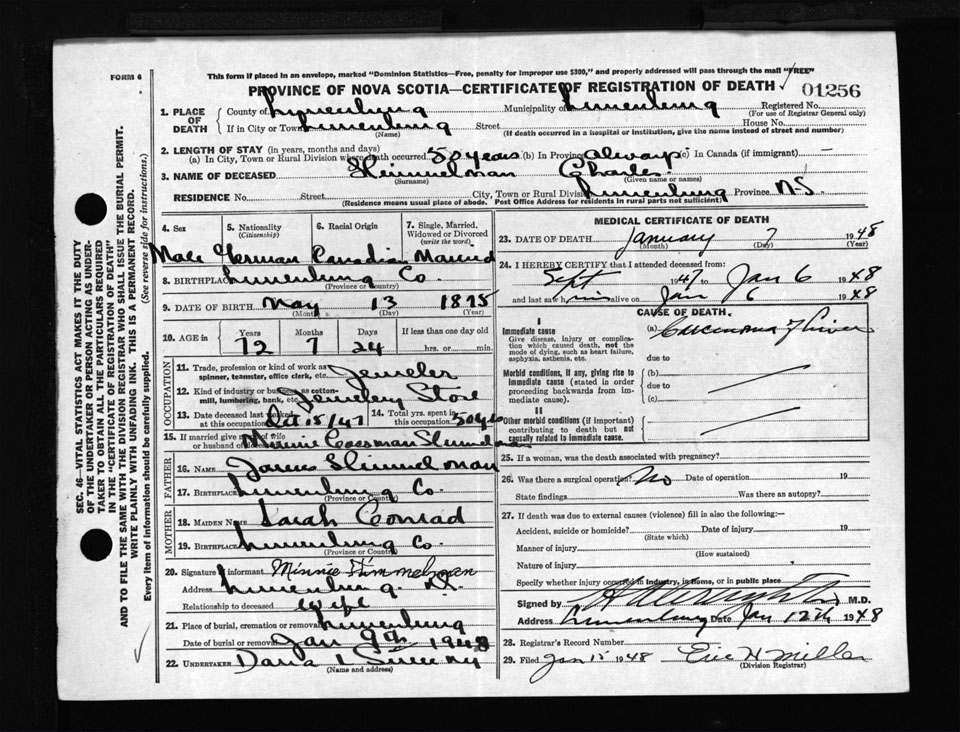 FORM 6
This form if placed in an envelope, marked "Dominion Statistics—Free, penalty for improper use $300," and properly addressed will pass through the mail "FREE"
PROVINCE OF NOVA SCOTIA—CERTIFICATE OF REGISTRATION OF DEATH
01256
1. PLACE OF DEATH County of Lunenburg Municipality of Lunenburg Registered No.
(For use of Registrar General only)
If in City or Town Lunenburg Street House No.
(Name) (If death occurred in a hospital or institution, give the name instead of street and number)
2. LENGTH OF STAY (in years, months and days)
(a) In City, Town or Rural Division where death occurred 50 years (b) In Province always (c) In Canada (if immigrant) —
3. NAME OF DECEASED Himmelman Charles
(Surname) (Given name or names)
RESIDENCE No. Street City, Town or Rural Division Lunenburg Province N.S.
(Residence means usual place of abode. Post Office Address for residents in rural parts not sufficient)
4. Sex 5. Nationality (Citizenship) 6. Racial Origin 7. Single, Married, Widowed or Divorced (write the word)
Male German Canadian Married
8. BIRTHPLACE Lunenburg Co.
(Province or country)
9. DATE OF BIRTH May 13 1875
(Month) (Day) (Year)
10. AGE in Years Months Days If less than one day old
72 7 24 hrs. or min.
OCCUPATION
11. Trade, profession or kind of work as spinner, teamster, office clerk, etc. Jeweler
12. Kind of industry or business as cotton-mill, lumbering, bank, etc. Jewelery Store
13. Date deceased last worked at this occupation Oct 15/47 14. Total yrs. spent in this occupation 50 yrs
15. If married give name of wife or husband of deceased Minnie Himmelman
FATHER
16. NAME James Himmelman
17. BIRTHPLACE Lunenburg Co.
(Province or Country)
MOTHER
18. MAIDEN NAME Sarah Conrad
19. BIRTHPLACE Lunenburg Co.
(Province or Country)
20. Signature of informant Minnie Himmelman
Address Lunenburg N.S.
Relationship to deceased Wife
21. Place of burial, cremation or removal Lunenburg
Date of burial or removal Jan 9th 1948
22. UNDERTAKER
(Name and address)
MEDICAL CERTIFICATE OF DEATH
23. DATE OF DEATH January 7 1948
(Month) (Day) (Year)
24. I HEREBY CERTIFY that I attended deceased from:
Sept 1947 to Jan 6 1948
and last saw him alive on Jan 6 1948
CAUSE OF DEATH
I
Immediate cause (a) Carcinoma of Liver
Give disease, injury or complication which caused death, not the mode of dying, such as heart failure, asphyxia, asthenia, etc.
due to
Morbid conditions, if any, giving rise to immediate cause (stated in order proceeding backwards from immediate cause).
(b)
due to
(c)
II
Other morbid conditions (if important) contributing to death but not causally related to immediate cause.
25. If a woman, was the death associated with pregnancy?
26. Was there a surgical operation? No Date of operation 19
State findings Was there an autopsy?
27. If death was due to external causes (violence) fill in also the following:—
Accident, suicide or homicide? Date of injury 19
(State which)
Manner of injury
(How sustained)
Nature of injury
Specify whether injury occurred in industry, in home, or in public place
Signed by M.D.
Address Lunenburg Date Jan 12th 1948
28. Registrar's Record Number
29. Filed Jan 15 1948 Eric H Miller
(Division Registrar)
SEC. 46—VITAL STATISTICS ACT MAKES IT THE DUTY
OF THE UNDERTAKER OR PERSON ACTING AS UNDER-
TAKER TO OBTAIN ALL THE PARTICULARS REQUIRED
IN THE "CERTIFICATE OF REGISTRATION OF DEATH"
AND TO FILE THE SAME WITH THE DIVISION REGISTRAR WHO SHALL ISSUE THE BURIAL PERMIT.
WRITE PLAINLY WITH UNFADING INK. THIS IS A PERMANENT RECORD.
Every item of information should be carefully supplied. (See reverse side for instructions.)